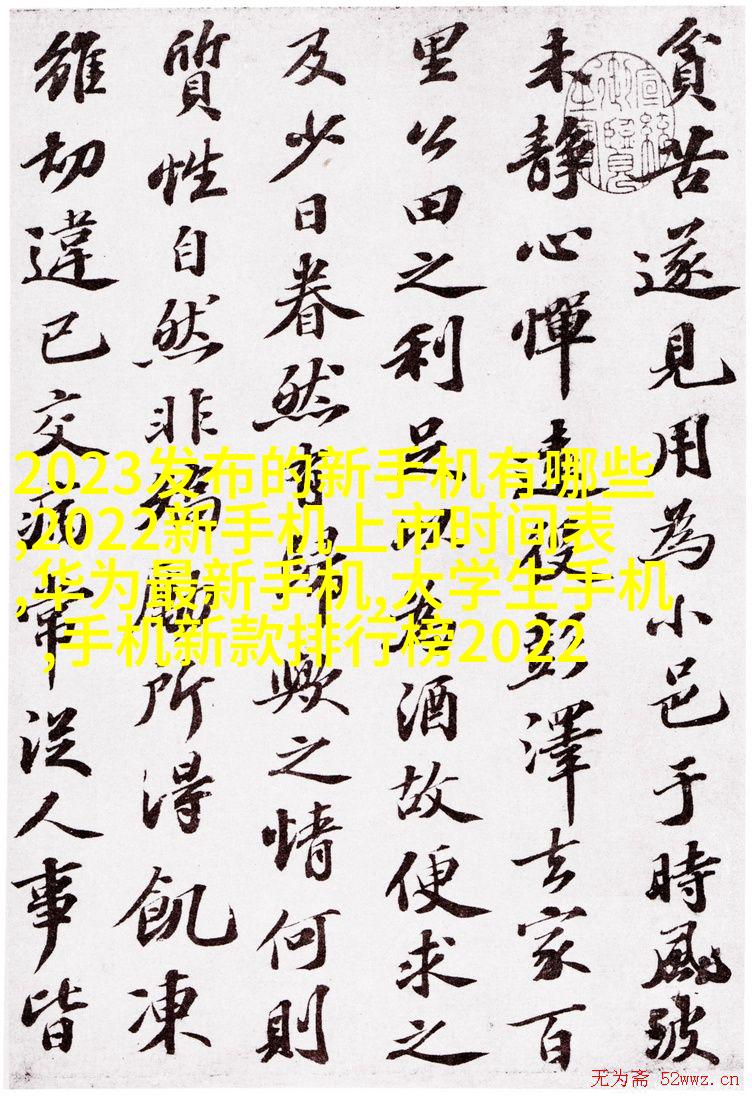 貧苦遂見用為小邑于時風波
未靜心憚遠役彭澤去家百
里公田之利足以為酒故便求之
及少日眷然有歸歟之情何則
質性自然非矯勵所得飢凍
雖切違己交病常從人事皆
2023发布的新手机有哪些
,2022新手机上市时间表
,华为最新手机,大学生手机
,手机新款排行榜2022
无为斋 52wwz.cn